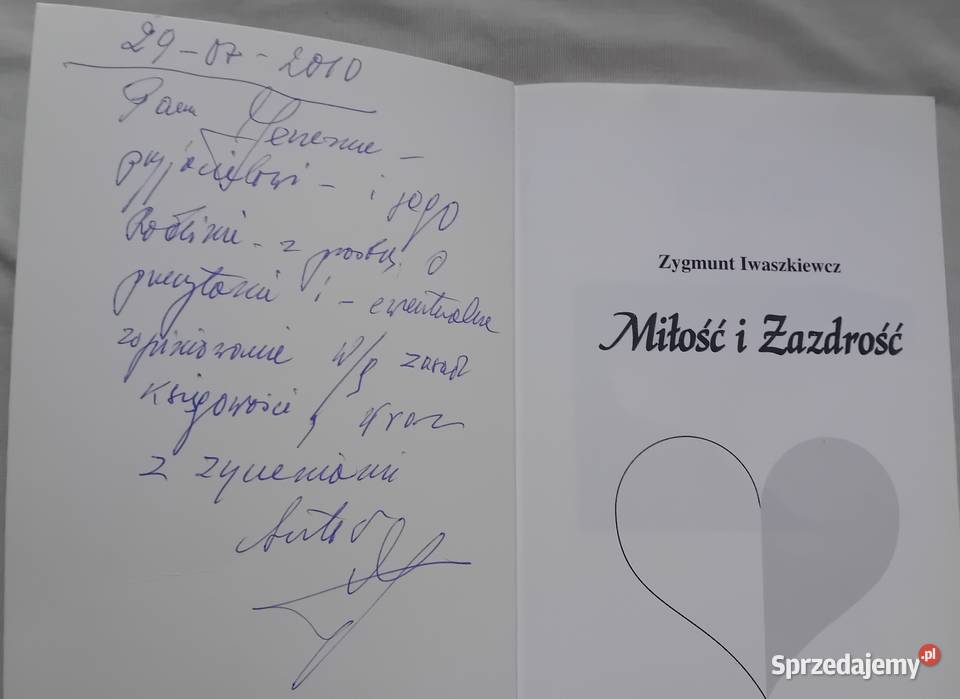 29-07-2010
Panu
przyjacielowi – i jego
Rodzinie – z prośbą o
przeczytanie i – ewentualne
zaopiniowanie w/g zasad
Księgowości, wraz
z życzeniami
Autor
Zygmunt Iwaszkiewcz
Miłość i Zazdrość
Sprzedajemy.pl